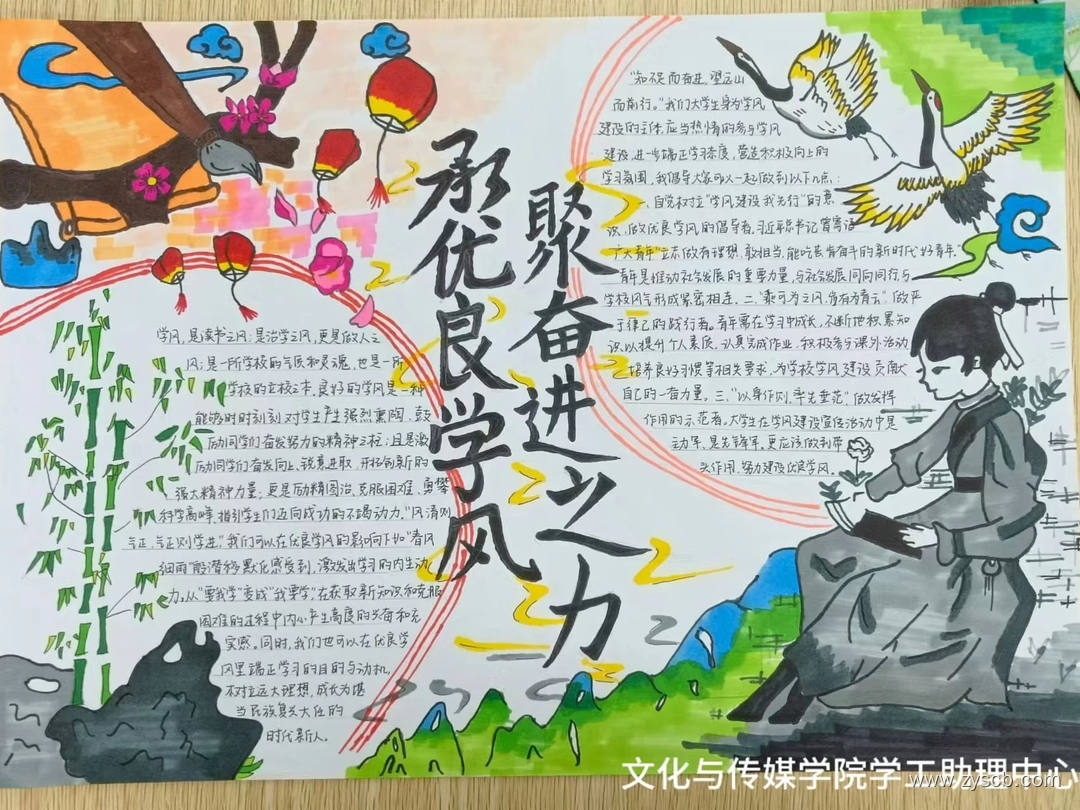 承优良学风
聚奋进之力
学风,是读书之风,是治学之风,更是做人之
风;是一所学校的气质和灵魂,也是一所
学校的立校之本,良好的学风是一种
能够时时刻刻对学生产生强烈熏陶、鼓
励同学们奋发努力的精神之核;且是激
励同学们奋发向上、锐意进取、开拓创新的
强大精神力量;更是励精图治、克服困难、勇攀
科学高峰,指引学生们迈向成功的不竭动力。"风清则
气正,气正则学进。"我们可以在优良学风的影响下如"春风
细雨"般潜移默化感受到,激发出学习的内生动
力。从"要我学"变成"我要学",在获取新知识和克服
困难的过程中内心产生高度的兴奋和充
实感。同时,我们也可以在优良学
风里端正学习的目的与动机,
树立远大理想,成长为堪
当民族复兴大任的
时代新人。
"知不足而奋进,望远山
而前行。"我们大学生身为学风
建设的主体,应当热情的参与学风
建设,进一步端正学习态度,营造积极向上的
学习氛围,我倡导大家可以一起做到以下几点:
一、自觉树立"学风建设我先行"的意
识,做优良学风的倡导者,习近平总书记曾寄语
广大青年"立志做有理想、敢担当、能吃苦、肯奋斗的新时代好青年。"
青年是推动社会发展的重要力量,与社会发展同向同行与
学校风气形成紧密相连。二、"乘可为之风,借有为青云"做严
于律己的践行者。青年需在学习中成长,不断地积累知
识以提升个人素质,认真完成作业,积极参与课外活动
培养良好习惯等相关要求,为学校学风建设贡献
自己的一奋力量。三、"以身作则,率先垂范"做发挥
作用的示范者。大学生在学风建设宣传活动中是
主力军、是先锋军,更应该做到带
头作用,努力建设优良学风。
文化与传媒学院学工助理中心
www.zyscb.com